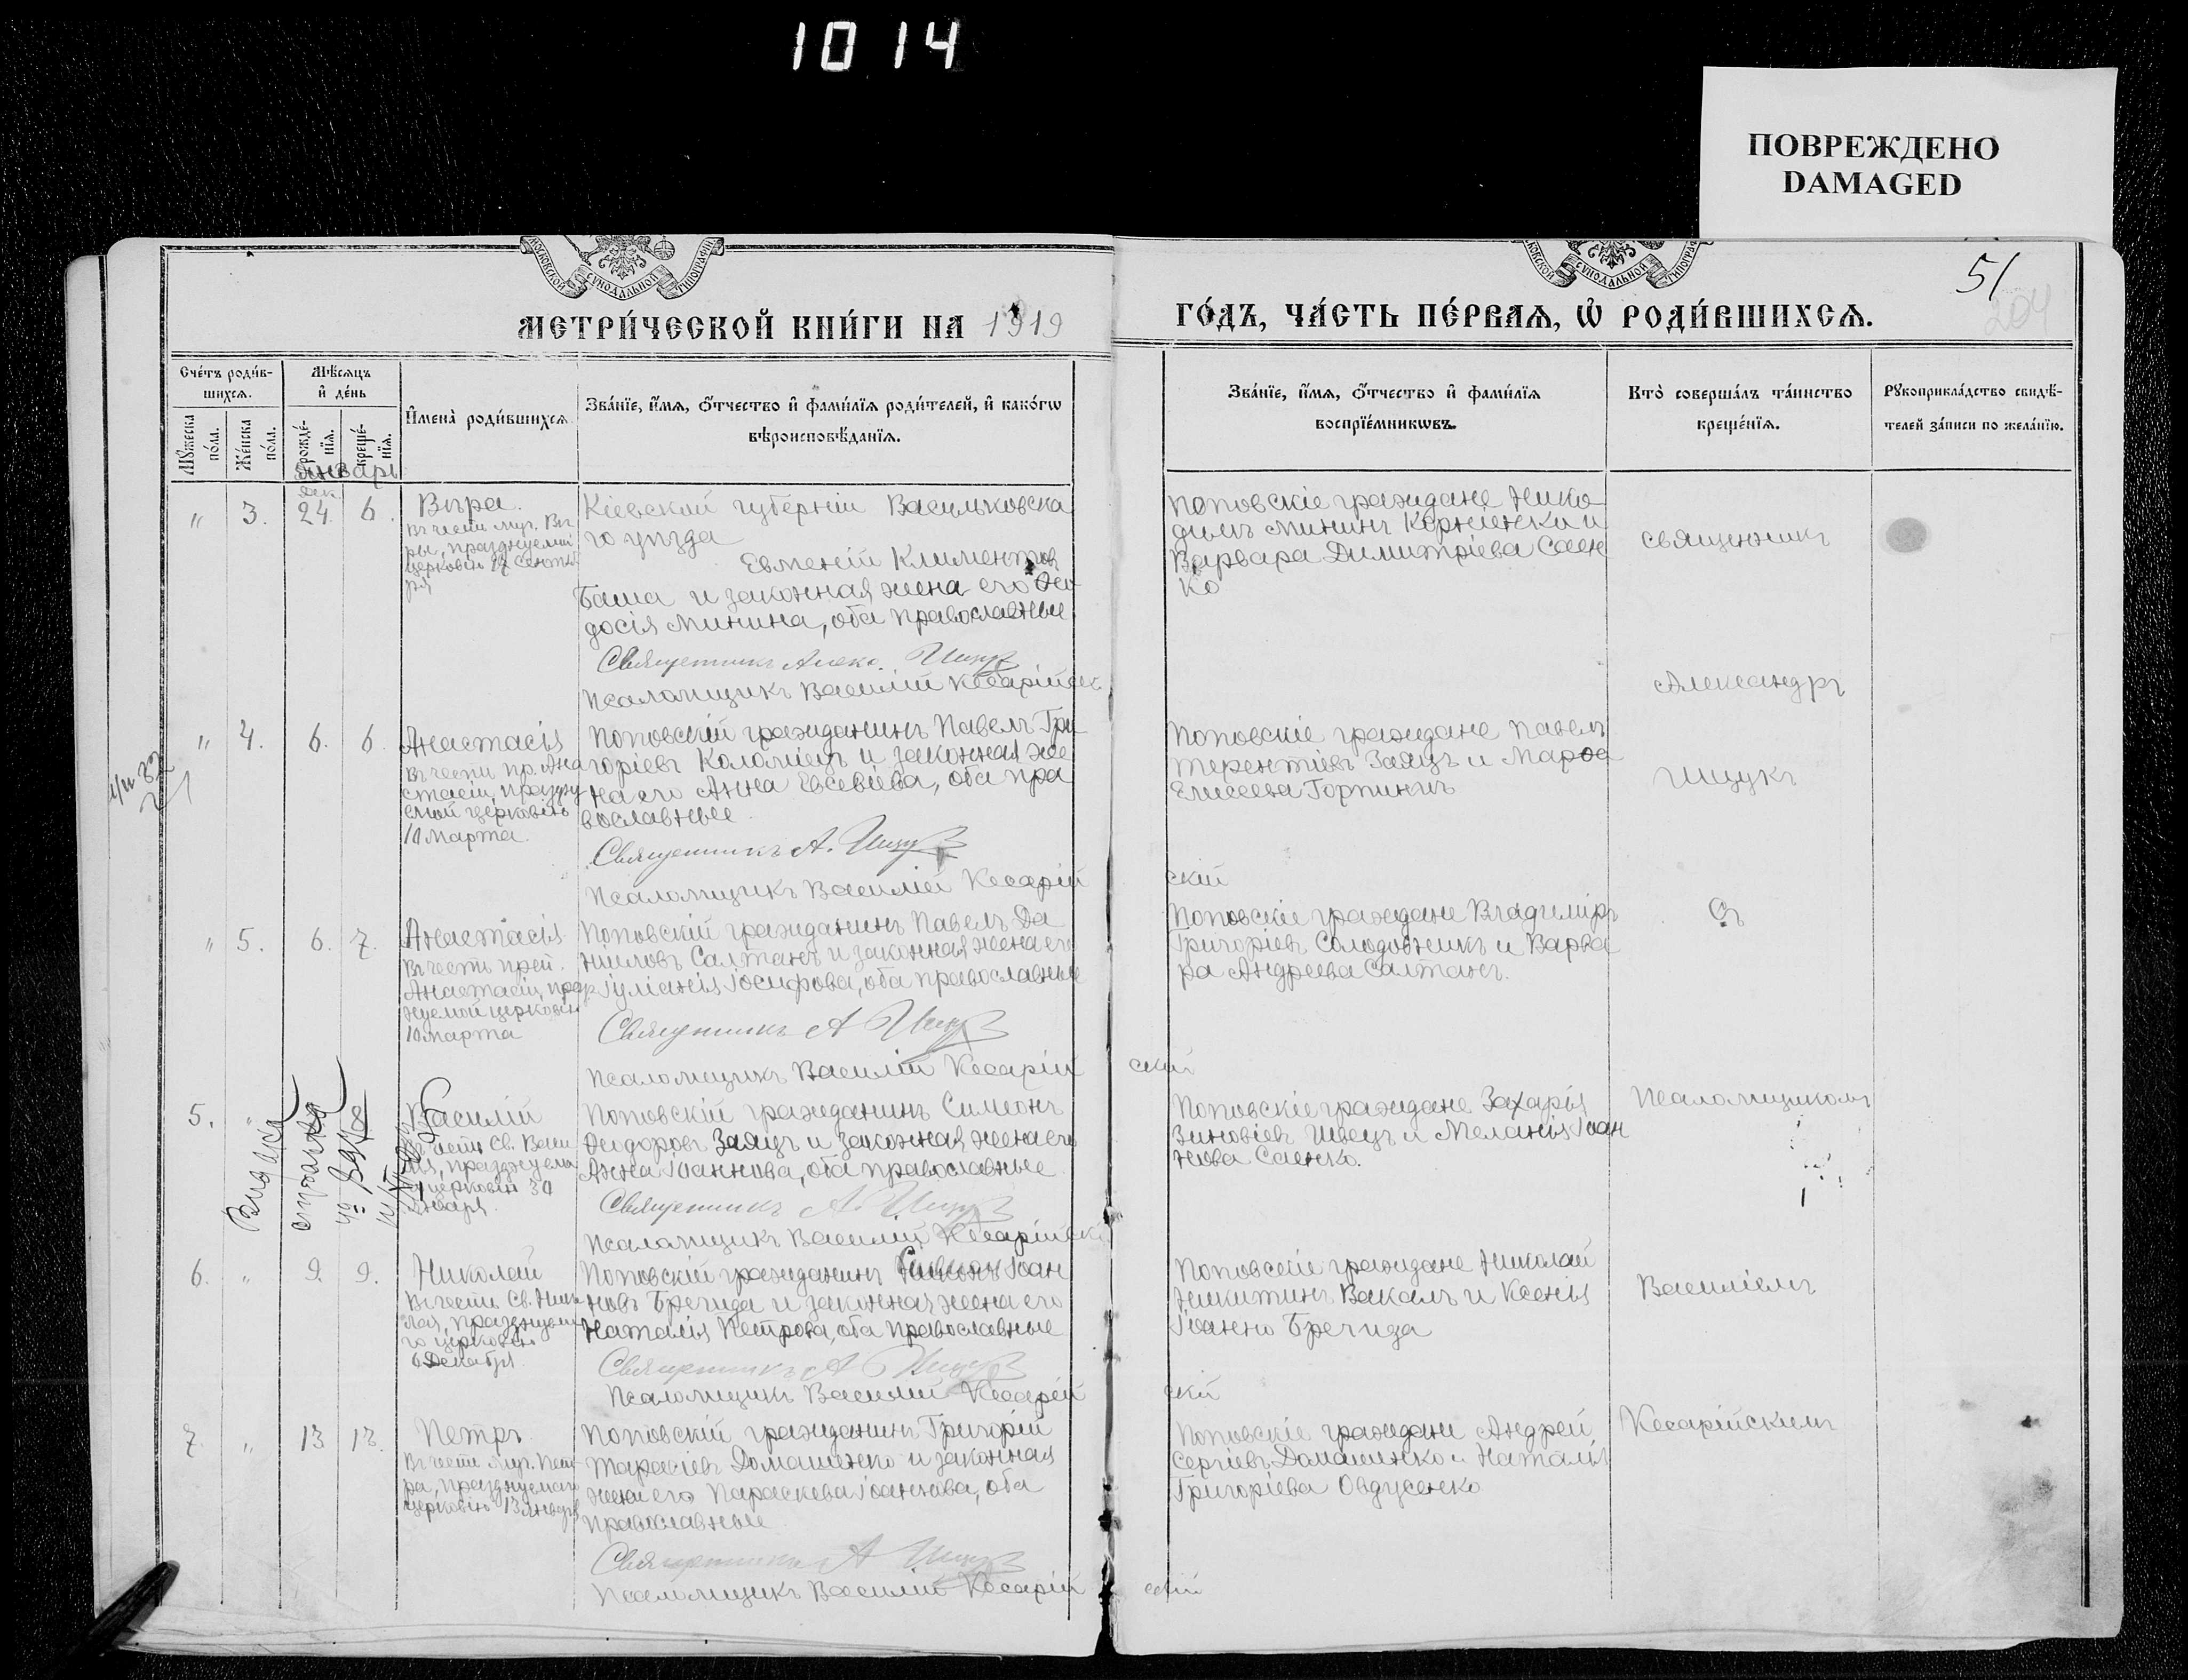 1014
ПОВРЕЖДЕНО
DAMAGED
МОСКОВСКОЙ СѴНОДАЛЬНОЙ ТИПОГРАФІИ
МЕТРИ́ЧЕСКОЙ КНИ́ГИ НА 1919
ГО́ДЪ, ЧА́СТЬ ПЕ́РВАЯ, Ѡ҆ РОДИ́ВШИХСЯ.
51
204
Сче́тъ роди́в-
шихся.
Мѣ́сяцъ
и҆ де́нь
Мꙋ́жеска по́ла.
Же́нска по́ла.
рожде́-нїя.
креще́-нїя.
И҆мена̀ роди́вшихся
Зва́нїе, и҆́мя, ѻ҆́тчество и҆ фами́лїя роди́телей, и҆ како́гѡ
вѣроисповѣ́данїя.
Зва́нїе, и҆́мя, ѻ҆́тчество и҆ фами́лїя
воспрїе́мникѡвъ.
Кто̀ соверша́лъ та́инство
креще́нїя.
Рꙋкоприкла́дство свидѣ́-
телей за́писи по жела́нїю.
Январь
"
3.
Дек.
24.
6.
Вѣра
Въ честь муч. Вѣ
ры, празднуемой
церковію 17 Сентяб
ря
Кіевской губерніи Васильковска
го уѣзда
Евменій Климентов
Баша и законная жена его Ѳео
досія Минина, оба православные
Священникъ Алекс. Ищук
Псаломщикъ Василій Кесарійск
Поповскіе граждане Нико
димъ Мининъ Корніенко и
Варвара Димитріева Саен
ко
Священникъ
Александръ
Ищукъ
"
4.
6.
6.
Анастасія
Въ честь пр. Ана
стасіи, праздну
емой церковію
10 Марта
Поповскій гражданинъ Павелъ Гри
горіевъ Коломіецъ и законная же
на его Анна Евсевіева, оба пра
вославные
Священникъ А. Ищук
Псаломщикъ Василій Кесарій
скій
Поповскіе граждане Павелъ
Терентіевъ Заяцъ и Марѳа
Елисеева Горпиничъ
"
5.
6.
7.
Анастасія
Въ честь преп.
Анастасіи, праз
нуемой церковію
10 Марта
Поповскій гражданинъ Павелъ Да
ниловъ Салтанъ и законная жена его
Іуліанія Іосифова, оба православные
Священникъ А Ищук
Псаломщикъ Василій Кесарій
скій
Поповскіе граждане Владиміръ
Григоріевъ Солодовникъ и Варва
ра Андреева Салтанъ
Съ
5.
"
Выдана
справка
Василій
Въ честь Св. Васи
лія, празднуема
го церковію 30
Января
Поповскій гражданинъ Симеонъ
Ѳеодоровъ Заяцъ и законная жена его
Анна Іоаннова, оба православные
Священникъ А. Ищук
Псаломщикъ Василій Кесарійскі
Поповскіе граждане Захарія
Зиновіевъ Швецъ и Меланія Іоан
нова Саенко.
Псаломщикомъ
6.
"
9.
9.
Николай
Въ честь Св. Нико
лая, празднуема
го церковію
6 Декабря
Поповскій гражданинъ Іоан
новъ Бречида и законная жена его
Наталія Петрова, оба православные
Священникъ А Ищук
Псаломщикъ Василій Кесарій
скій
Поповскіе граждане Николай
Никитинъ Вакалъ и Ксенія
Іоанно Бречида
Василіемъ
7.
"
13
13.
Петръ
Въ честь муч. Пет
ра, празднуемаго
церковію 13 Января
Поповскій гражданинъ Григорій
Тарасіевъ Домашенко и законная
жена его Параскева Іоаннова, оба
православные
Священникъ А Ищук
Псаломщикъ Василій Кесарій
скій
Поповскіе граждане Андрей
Сергіевъ Домашенко и Наталія
Григоріева Овдусенко
Кесарійскимъ